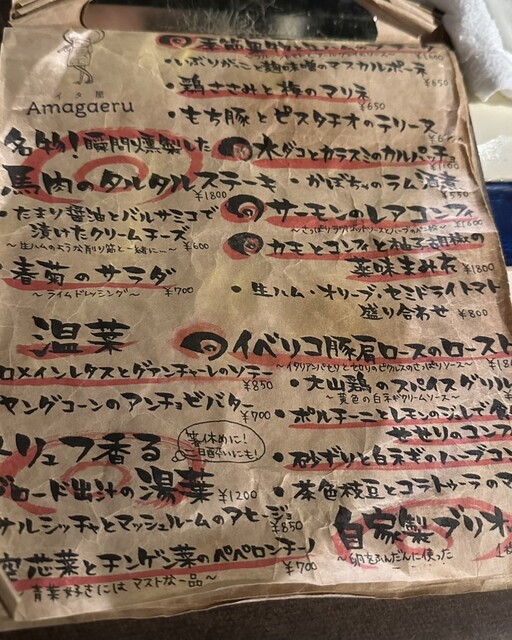 イタ屋
Amagaeru
・いぶりがっこと麹味噌のマスカルポーネ
¥650
・鶏ささみと梅のマリネ
¥650
・もち豚とピスタチオのテリーヌ
名物!瞬間燻製した
馬肉のタルタルステーキ
¥1800
・たまり醤油とバルサミコで
漬けたクリームチーズ
～生ハムのような削り節と一緒に…～ ¥600
春菊のサラダ
～ライムドレッシング～ ¥700
水ダコとカラスミのカルパッチョ
・かぼちゃのラム酒煮
¥550
サーモンのレアコンフィ
カモとコンフィと柚子胡椒の
薬味まみれ ¥1800
・生ハム・オリーブ・セミドライトマト
盛り合わせ ¥800
温菜
ロメインレタスとグアンチャーレのソテー
¥850
ヤングコーンのアンチョビバター
¥700
トリュフ香る
箸休めに!
二日酔いにも!
ブロード出汁の湯葉
¥1200
サルシッチャとマッシュルームのアヒージョ
¥850
空芯菜とチンゲン菜のペペロンチーノ
～青菜好きにはマストな一品～ ¥700
イベリコ豚肩ロースのロースト
～イタリアンパセリとセロリのピクルスのさっぱりソース～
・大山鶏のスパイスグリル
～黄色の白ネギクリームソース～
・ポルチーニとレモンのジュレで食
せせりのコンフ
・砂ずりと白ネギのハーブコン
・茶色枝豆とコラトゥーラのマ
自家製ブリオ
～卵をふんだんに使った